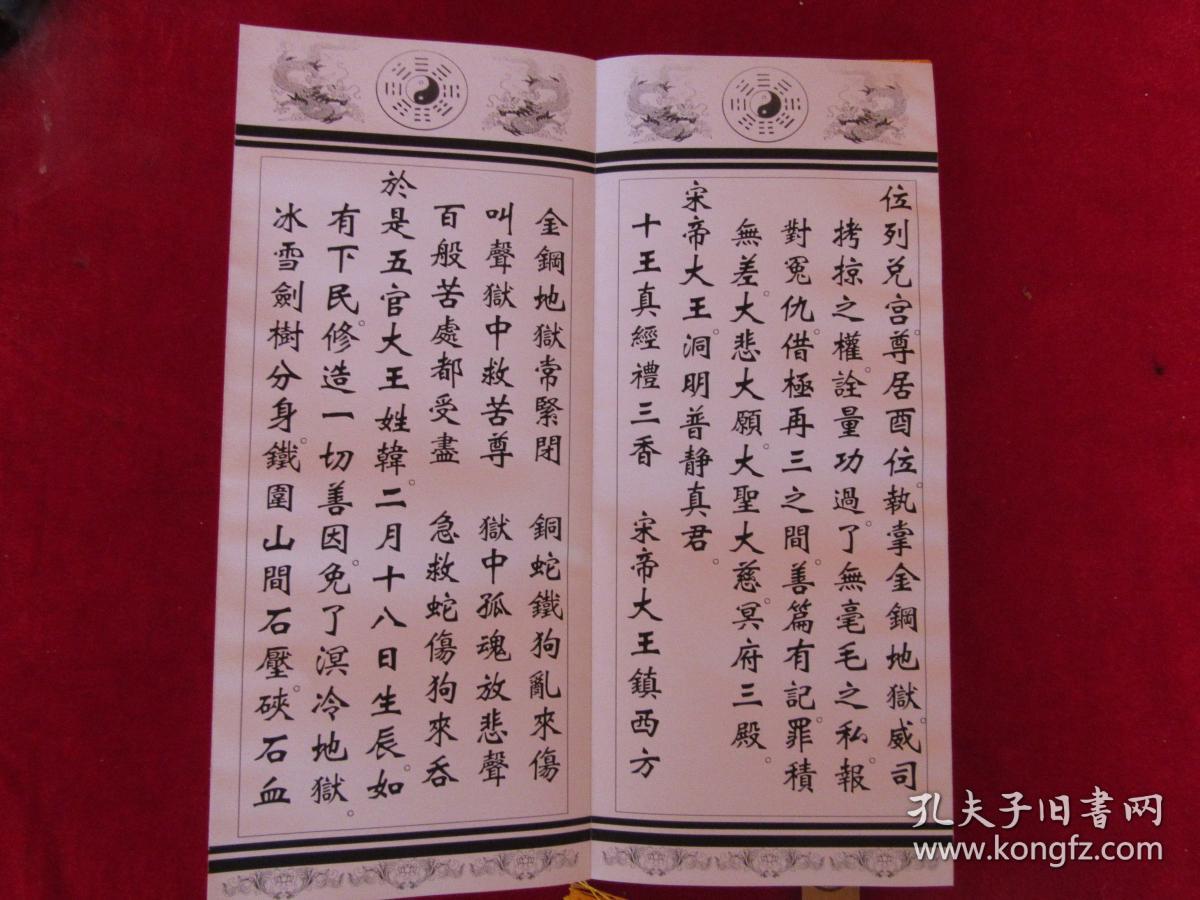 位列兑宫。尊居酉位。執掌金鋼地獄。威司
拷掠之權。詮量功過。了無毫毛之私。報
對冤仇。借極再三之間。善篇有記。罪積
無差。大悲大願。大聖大慈。冥府三殿。
宋帝大王。洞明普静真君。
十王真經禮三香 宋帝大王鎮西方
金鋼地獄常緊閉 銅蛇鐵狗亂來傷
叫聲獄中救苦尊 獄中孤魂放悲聲
百般苦處都受盡 急救蛇傷狗來吞
於是五官大王姓韓。二月十八日生辰。如
有下民。修造一切善因。免了溟冷地獄。
冰雪劍樹分身。鐵圍山間石壓。硤石血
孔夫子旧書网
www.kongfz.com